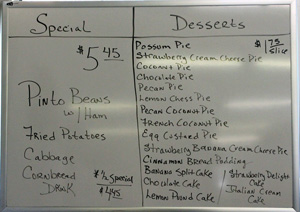 Special
$5.45
Pinto Beans
w/Ham
Fried Potatoes
Cabbage
Cornbread
Drink
$ 1/2 Special
$4.45
Desserts
Possum Pie
$1.75 Slice
Strawberry Cream Cheese Pie
Coconut Pie
Chocolate Pie
Pecan Pie
Lemon Chess Pie
Pecan Coconut Pie
French Coconut Pie
Egg Custard Pie
Strawberry Banana Cream Cheese Pie
Cinnamon Bread Pudding
Banana Split Cake
Strawberry Delight Cake
Chocolate Cake
Italian Cream Cake
Lemon Pound Cake